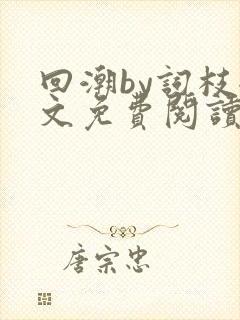 回潮by詞枝
文免費閱讀
唐宗忠